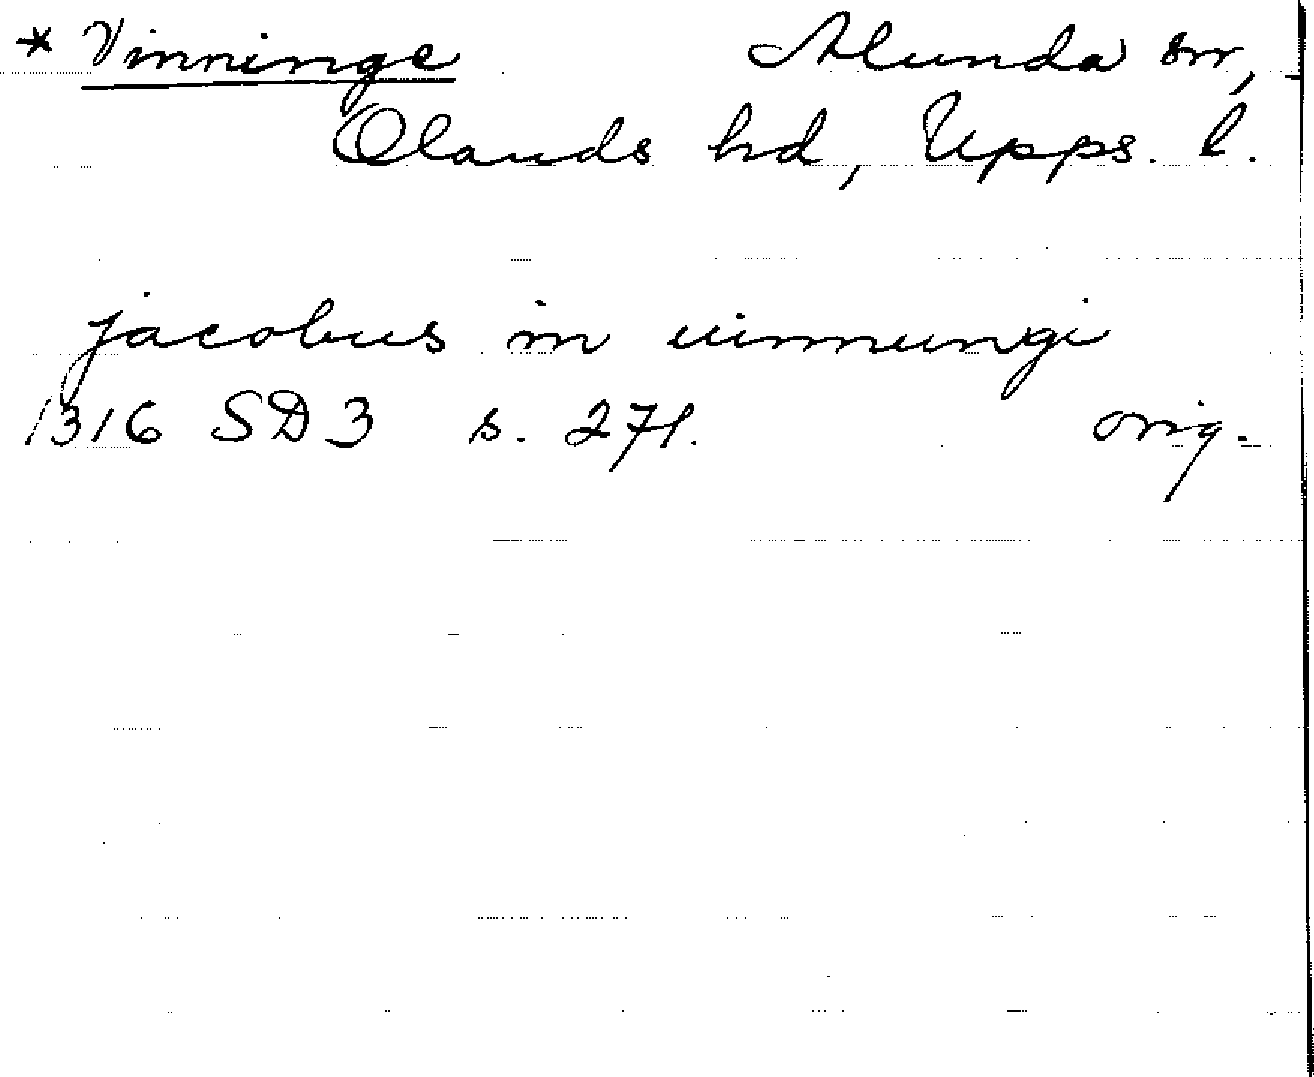 * Vinninge Alunda sn,
Olands hd, Upps. l.
jacobus in uinnungi
1316 SD 3 s. 271. orig.